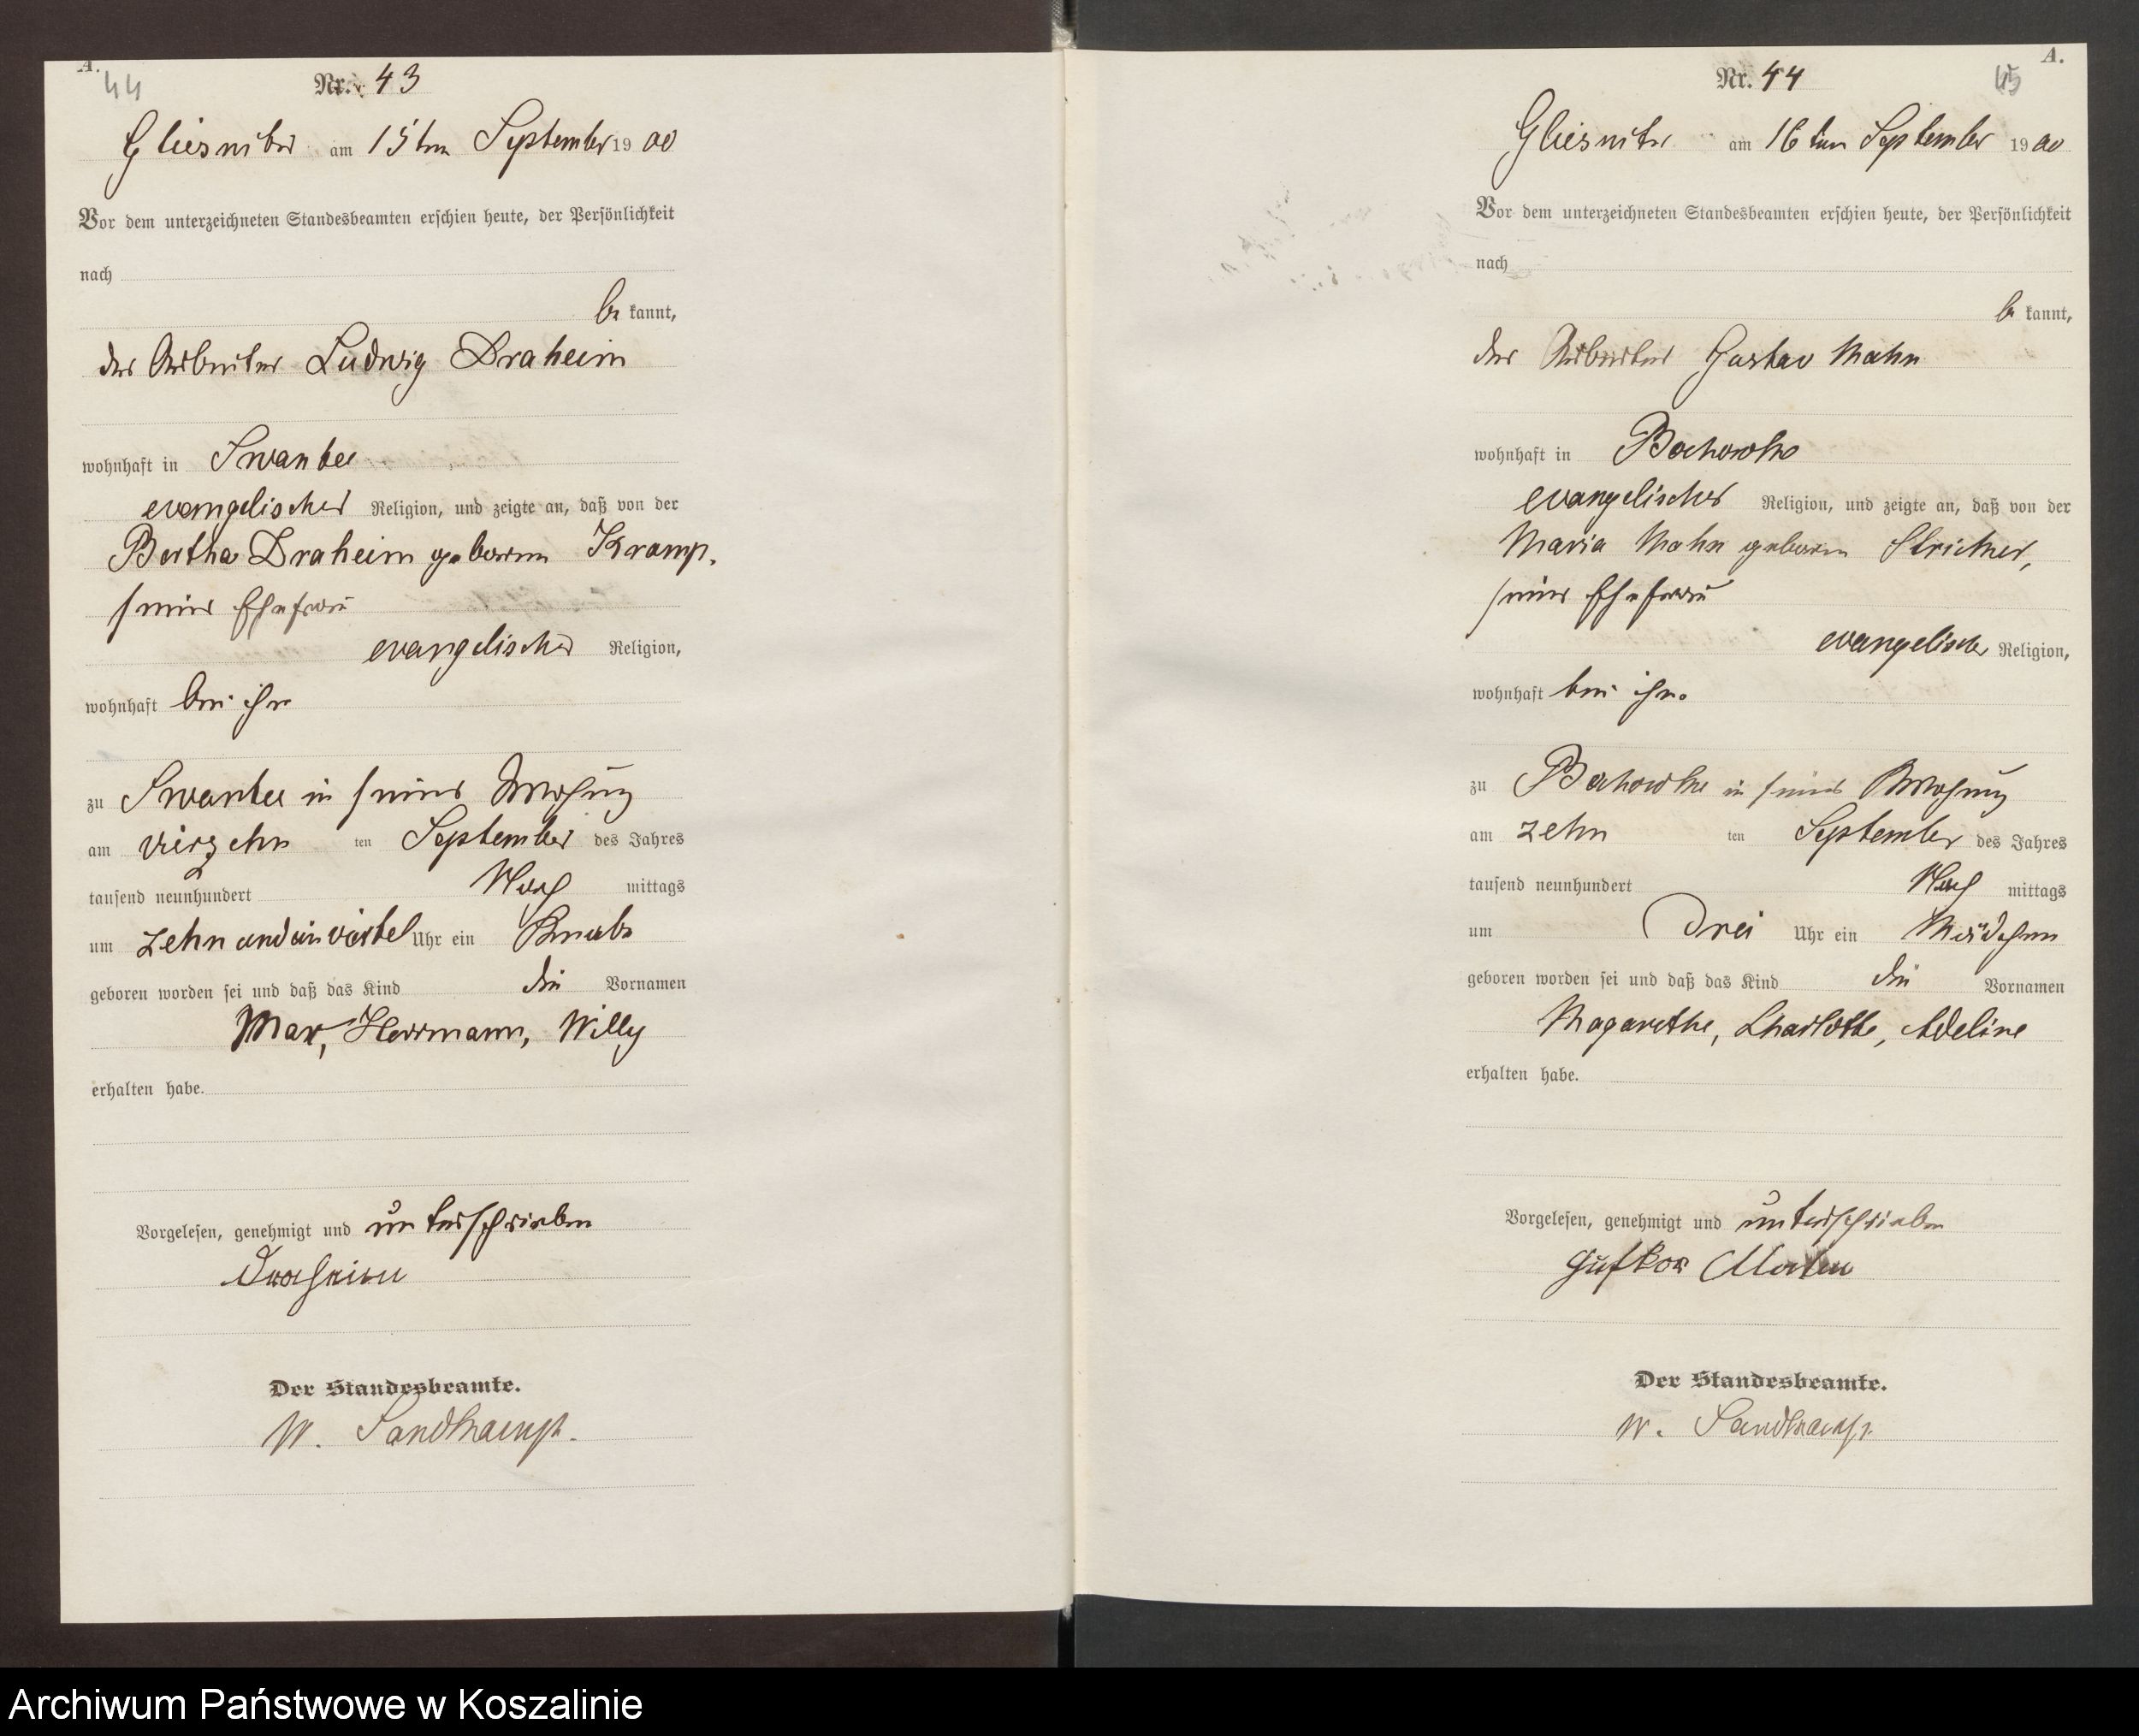 A.
44
Nr. 43
Gliesnitz am 15ten September 1900
Vor dem unterzeichneten Standesbeamten erschien heute, der Persönlichkeit
nach
be kannt,
der Arbeiter Ludwig Draheim
wohnhaft in Swantee
evangelischer Religion, und zeigte an, daß von der
Bertha Draheim geborenen Kramp,
seiner Ehefrau
evangelischer Religion,
wohnhaft bei ihm
zu Swantee in seiner Wohnung
am vierzehn ten September des Jahres
tausend neunhundert Nach mittags
um zehn und ein viertel Uhr ein Knabe
geboren worden sei und daß das Kind die Vornamen
Max, Herrmann, Willy
erhalten habe.
Vorgelesen, genehmigt und unterschrieben
Draheim
Der Standesbeamte.
W. Sandkamp.
A.
45
Nr. 44
Gliesnitz am 16ten September 1900
Vor dem unterzeichneten Standesbeamten erschien heute, der Persönlichkeit
nach
be kannt,
der Arbeiter Gustav Mahn
wohnhaft in Bochowke
evangelischer Religion, und zeigte an, daß von der
Maria Mahn geboren Stricker,
seiner Ehefrau
evangelischer Religion,
wohnhaft bei ihm
zu Bochowke in seiner Wohnung
am zehn ten September des Jahres
tausend neunhundert Nach mittags
um drei Uhr ein Mädchen
geboren worden sei und daß das Kind die Vornamen
Magarethe, Charlotte, Adeline
erhalten habe.
Vorgelesen, genehmigt und unterschrieben
Gustav Mahn
Der Standesbeamte.
W. Sandkamp.
Archiwum Państwowe w Koszalinie